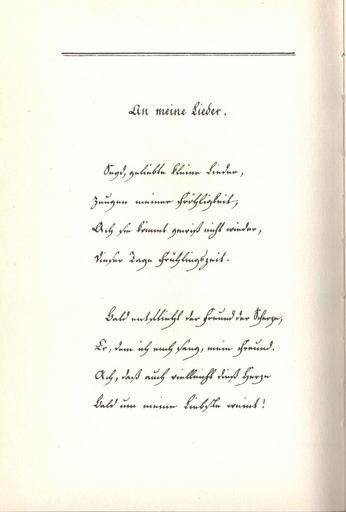 An meine Lieder.
Seyd, geliebte kleine Lieder,
Zeugen meiner Fröhligkeit;
Ach sie kömmt gewiß nicht wieder,
Dieser Tage Frühlingszeit.
Bald entflieht der Freund der Scherze,
Er, dem ich euch sang, mein Freund.
Ach, daß auch vielleicht dieß Herze
Bald um meine Liebste weint!